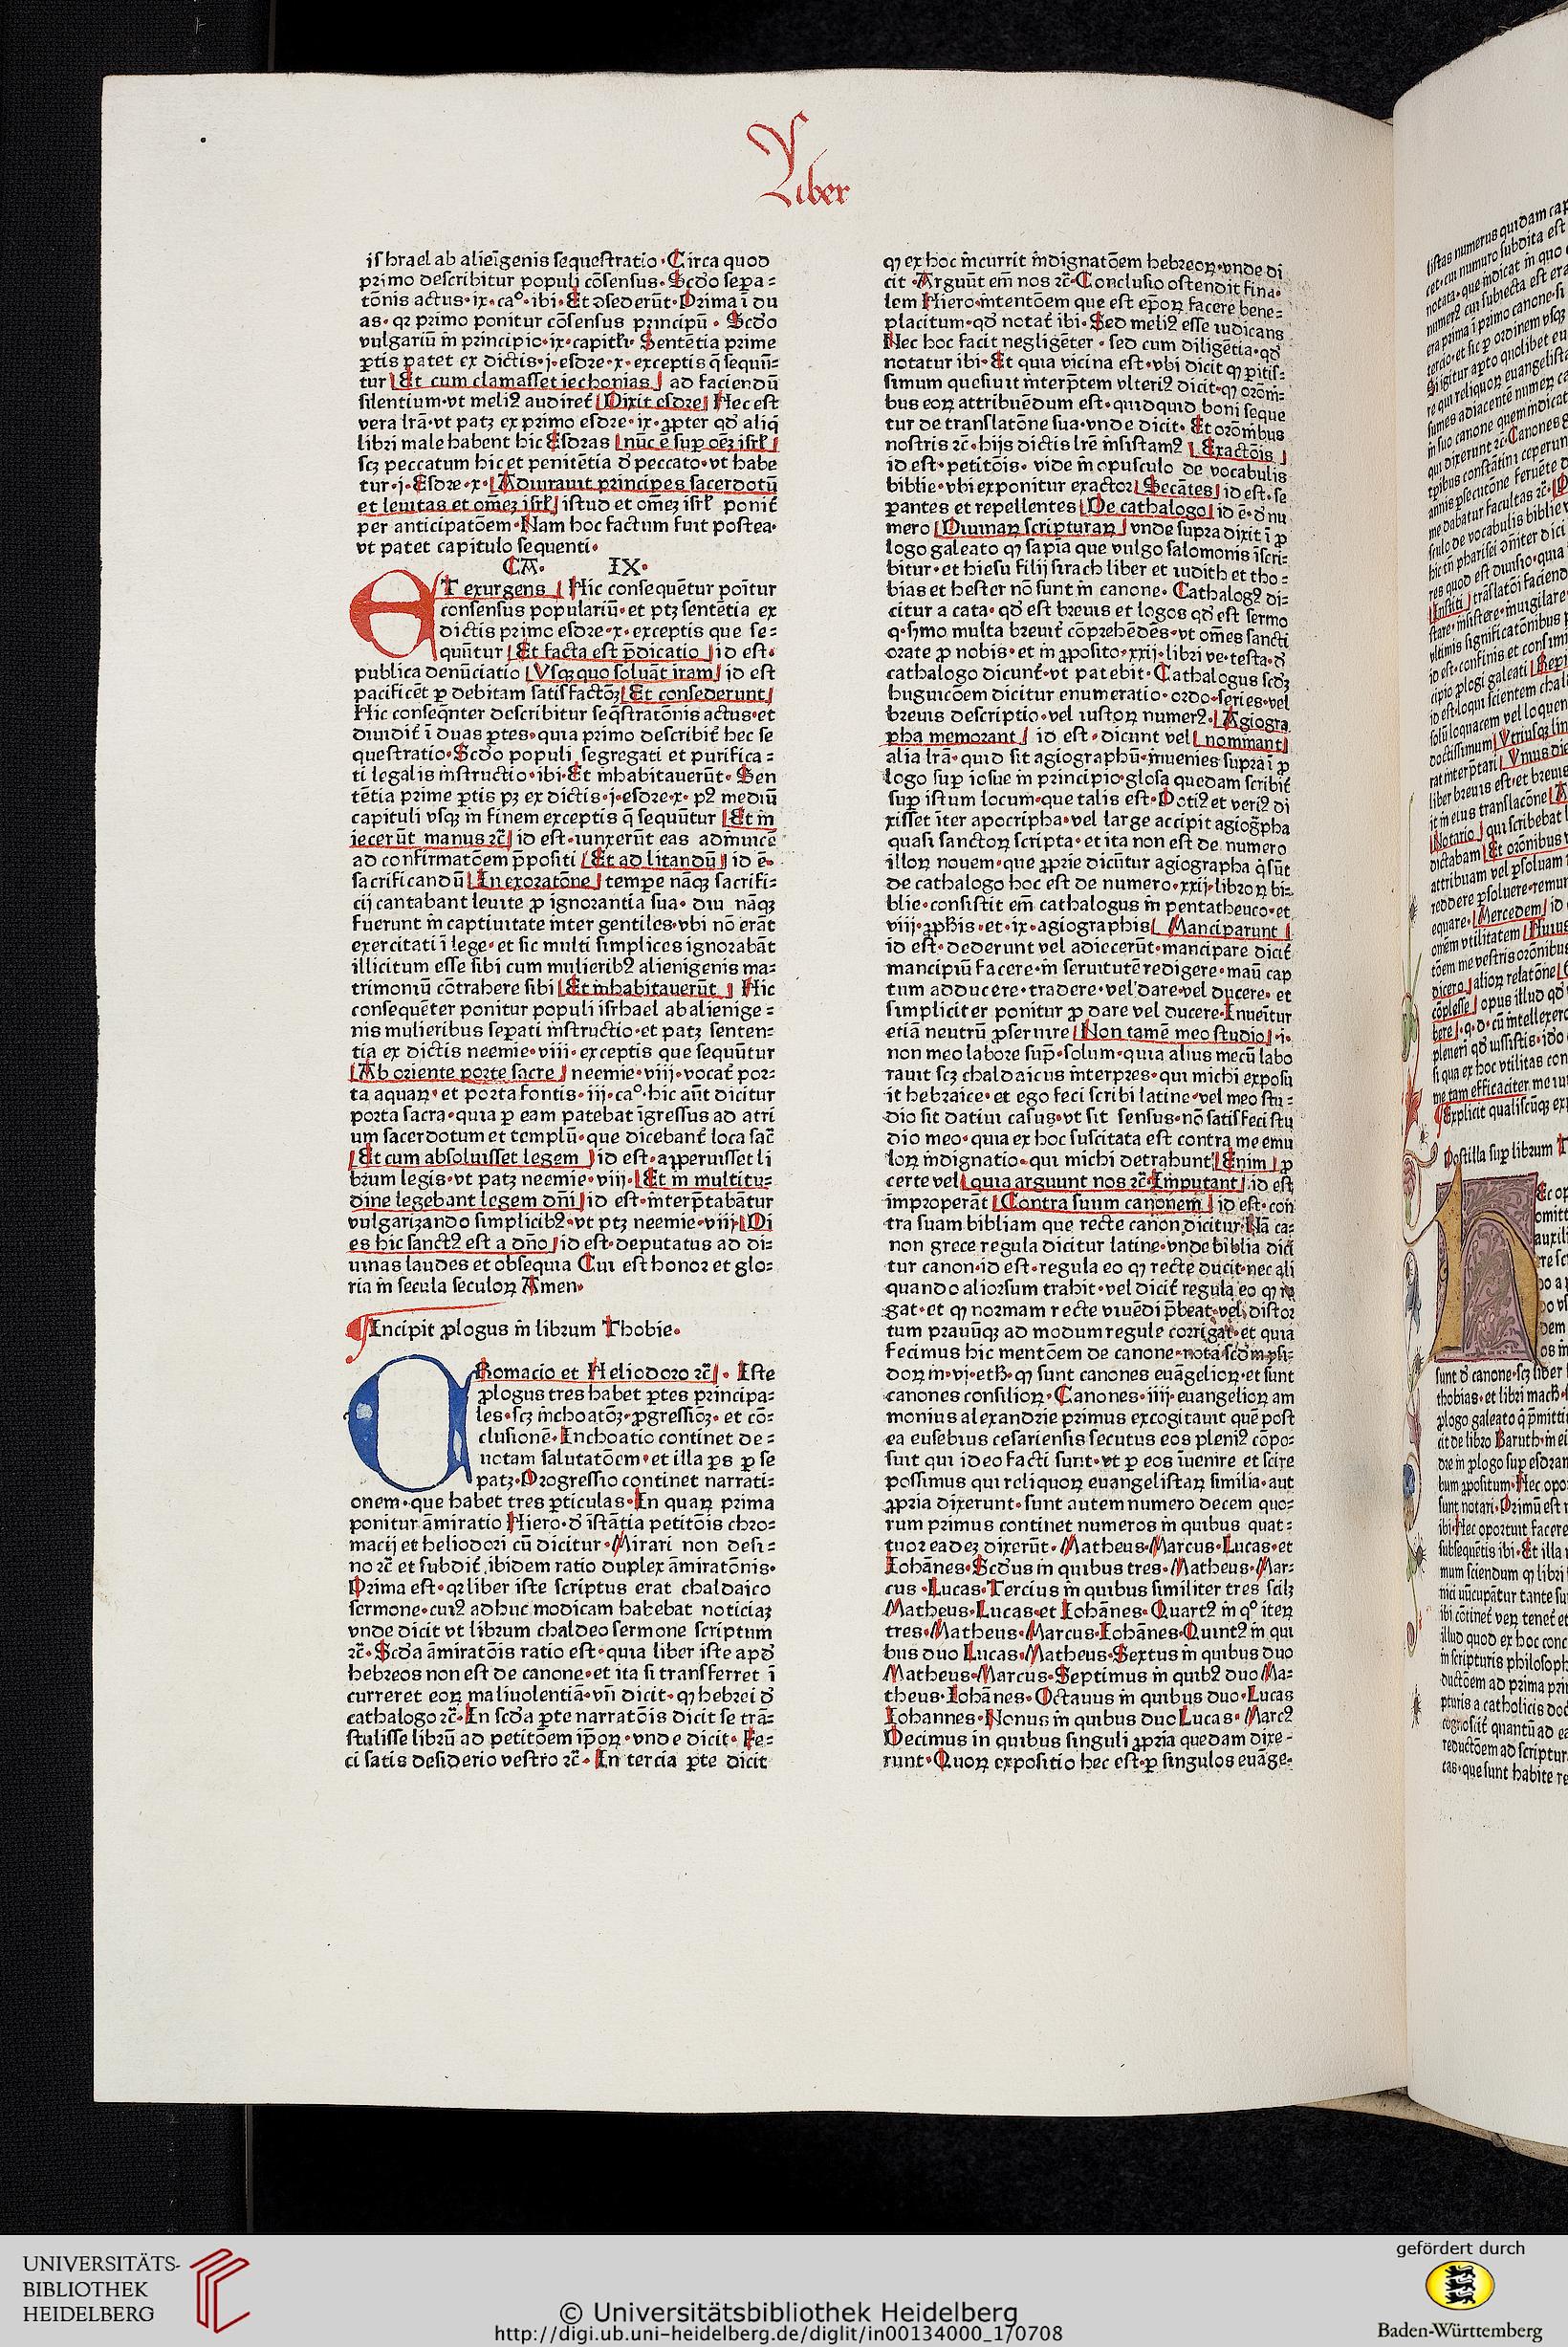 Liber
iſrael ab alieīgenis ſequeſtratio · Circa quod
primo deſcribitur populi cōſenſus · Scdo ſepa⸗
tōnis actus · ix · ca° · ibi · Et ↄſederūt · Prima ī du
as · qꝛ primo ponitur cōſenſus principū · Scdo
vulgariū in principio · ix · capitłi · Sentētia prime
ꝑtis patet ex dictis · j · eſdre · x · exceptis q̄ ſequū⸗
tur Et cum clamaſſet iechonias ad faciendū
ſilentium · vt meliꝰ audiret̄ Dixit eſdre Hec eſt
vera lrā · vt patꝫ ex primo eſdre · ix · ꝓpter qd̓ aliq̄
libri male habent hic Eſdras nūc ē ſuꝑ oēꝫ iſrł
ſcꝫ peccatum hic et penitētia d̓ peccato · vt habe
tur · j · Eſdre · x · Adiurauit principes ſacerdotū
et leuitas et om̄eꝫ iſrł iſtud et om̄eꝫ iſrł ponit̄
per anticipatōem · Nam hoc factum fuit poſtea ·
vt patet capitulo ſequenti ·
CA · IX ·
ET exurgens Hic conſequētur poītur
conſenſus populariū · et ptꝫ ſentētia ex
dictis primo eſdre · x · exceptis que ſe⸗
quūtur Et facta eſt p̄dicatio id eſt ·
publica denūciatio Vſqꝫ quo ſoluāt iram id eſt
pacificēt ꝑ debitam ſatiſfactōꝫ Et conſederunt
Hic conſeq̄nter deſcribitur ſeq̄ſtratōnis actus · et
diuidit̄ ī duas ꝑtes · quia primo deſcribit̄ hec ſe
queſtratio · Scdo populi ſegregati et purifica⸗
ti legalis inſtructio · ibi · Et inhabitauerūt · Sen
tētia prime ꝑtis pꝫ ex dictis · j · eſdre · x · pꝰ mediū
capituli vſqꝫ in finem exceptis q̄ ſequūtur Et in
iecerūt manus ⁊c̄ id eſt · iunxerūt eas adinuicē
ad confirmatōem p̄poſiti Et ad litandū id ē ·
ſacrificandū In exoratōne tempe nāqꝫ ſacrifi⸗
cij cantabant leuite ꝓ ignorantia ſua · diu nāqꝫ
fuerunt in captiuitate inter gentiles · vbi nō erāt
exercitati ī lege · et ſic multi ſimplices ignorabāt
illicitum eſſe ſibi cum mulieribꝰ alienigenis ma⸗
trimoniū cōtrahere ſibi Et inhabitauerūt Hic
conſequēter ponitur populi iſrhael ab alienige⸗
nis mulieribus ſeꝑati inſtructio · et patꝫ ſenten⸗
tia ex dictis neemie · viii · exceptis que ſequūtur
Ab oriente porte ſacre neemie · viij · vocat̄ por⸗
ta aquaꝝ · et porta fontis · iij · ca° · hic aūt dicitur
porta ſacra · quia ꝑ eam patebat īgreſſus ad atri
um ſacerdotum et templū · que dicebant̄ loca ſac̄
Et cum abſoluiſſet legem id eſt · aꝑperuiſſet li
brum legis · vt patꝫ neemie · viij · Et in multitu⸗
dine legebant legem dn̄i id eſt · interp̄tabātur
vulgarizando ſimplicibꝰ · vt ptꝫ neemie · viij · Di
es hic ſanctꝰ eſt a dn̄o id eſt · deputatus ad di⸗
uinas laudes et obſequia Cui eſt honor et glo⸗
ria in ſecula ſeculoꝝ Amen ·
¶Incipit ꝓlogus in librum Thobie ·
CHromacio et Heliodoro ⁊c̄ · Iſte
ꝓlogus tres habet ꝑtes principa⸗
les · ſcꝫ inchoatōꝫ · ꝓgreſſiōꝫ · et cō⸗
cluſionē · Inchoatio continet de⸗
uotam ſalutatōem · et illa ꝑs ꝑ ſe
patꝫ · Progreſſio continet narrati⸗
onem · que habet tres ꝑticulas · In quaꝝ prima
ponitur āmiratio Hiero · d̓ iſtātia petitōis chro⸗
macij et heliodori cū dicitur · Mirari non deſi⸗
no ⁊c̄ et ſubdit̄ ibidem ratio duplex āmiratōnis ·
Prima eſt · qꝛ liber iſte ſcriptus erat chaldaico
ſermone · cuiꝰ adhuc modicam habebat noticiaꝫ
vnde dicit vt librum chaldeo ſermone ſcriptum
⁊c̄ · Scd̓a āmiratōis ratio eſt · quia liber iſte apd̓
hebreos non eſt de canone · et ita ſi tranſferret ī
curreret eoꝝ maliuolentiā · vn̄ dicit · ꝙ hebrei d̓
cathalogo ⁊c̄ · In ſcd̓a ꝑte narratōis dicit ſe trā⸗
ſtuliſſe librū ad petitōem ip̄oꝝ · vnde dicit · Fe⸗
ci ſatis deſiderio veſtro ⁊c̄ · In tercia ꝑte dicit
ꝙ ex hoc incurrit indignatōem hebreoꝝ · vnde di
cit · Arguūt em̄ nos ⁊c̄ · Concluſio oſtendit fina⸗
lem Hiero · intentōem que eſt ep̄oꝝ facere bene⸗
placitum · qd̓ notat̄ ibi · Sed meliꝰ eſſe iudicans
Nec hoc facit negligēter · ſed cum diligētia · qd̓
notatur ibi · Et quia vicina eſt · vbi dicit ꝙ ꝑitiſ⸗
ſimum queſiuit interp̄tem vlteriꝰ dicit · ꝙ orōni⸗
bus eoꝝ attribuēdum eſt · quidquid boni ſeque
tur de tranſlatōne ſua · vnde dicit · Et orōnibus
noſtris ⁊c̄ · hijs dictis lrē inſiſtamꝰ Exactōis
id eſt · petitōis · vide in opuſculo de vocabulis
biblie · vbi exponitur exactor Secātes id eſt · ſe
ꝑantes et repellentes De cathalogo id ē · d̓ nu
mero Diuinaꝝ ſcripturaꝝ vnde ſupra dixit ī ꝓ
logo galeato ꝙ ſapīa que vulgo ſalomonis iſcri⸗
bitur · et hieſu filij ſirach liber et iudith et tho⸗
bias et heſter nō ſunt in canone · Cathalogꝰ di⸗
citur a cata · qd̓ eſt breuis et logos qd̓ eſt ſermo
q · ſermo multa breuit̄ cōprehēdēs · vt om̄es ſancti
orate ꝓ nobis · et in ꝓpoſito · xxij · libri ve · teſta · d̓
cathalogo dicunt̄ · vt patebit · Cathalogus ſcd̓ꝫ
huguicōem dicitur enumeratio · ordo · ſeries · vel
breuis deſcriptio · vel iuſtoꝝ numerꝰ · Agiogra
pha memorant id eſt · dicunt vel nominant
alia lrā · quid ſit agiographū · inuenies ſupra ī ꝓ
logo ſuꝑ ioſue in principio · gloſa quedam ſcribit̄
ſuꝑ iſtum locum · que talis eſt · Potiꝰ et veriꝰ di
xiſſet iter apocripha · vel large accipit agiogr̄pha
quaſi ſanctoꝝ ſcripta · et ita non eſt de numero
illoꝝ nouem · que ꝓprie dicūtur agiographa q̓ ſūt
de cathalogo hoc eſt de numero · xxij · libroꝝ bi⸗
blie · conſiſtit em̄ cathalogus in pentatheuco · et
viij · ꝓphīs · et · ix · agiographis Manciparunt
id eſt · dederunt vel adiecerūt · mancipare dicit̄
mancipiū facere · in ſeruitutē redigere · manū cap
tum adducere · tradere · vel dare · vel ducere · et
ſimpliciter ponitur ꝓ dare vel ducere · Inueītur
etiā neutrū ꝓ ſeruire Non tamē meo ſtudio · i ·
non meo labore ſuꝑ · ſolum · quia alius mecū labo
rauit ſcꝫ chaldaicus interpres · qui michi expoſu
it hebraice · et ego feci ſcribi latine · vel meo ſtu⸗
dio ſit datiui caſus · vt ſit ſenſus · nō ſatiſfeci ſtu
dio meo · quia ex hoc ſuſcitata eſt contra me emu
loꝝ indignatio · qui michi detrahunt · Enim ꝓ
certe vel quia arguunt nos ⁊c̄ · Imputant id eſt
improperāt Contra ſuum canonem id eſt · con
tra ſuam bibliam que recte canon dicitur · Nā ca⸗
non grece regula dicitur latine · vnde biblia dici
tur canon · id eſt · regula eo ꝙ recte ducit · nec ali
quando aliorſum trahit · vel dicit̄ regula eo ꝙ re
gat · et ꝙ normam recte viuēdi p̄beat · vel diſtor
tum prauūqꝫ ad modum regule corrigat · et quia
fecimus hic mentōem de canone · nota ſcd̓m yſi⸗
doꝝ in · vj · eth̓ · ꝙ ſunt canones euāgelioꝝ · et ſunt
canones conſilioꝝ · Canones · iiij · euangelioꝝ am
monius alexandrie primus excogitauit quē poſt
ea euſebius ceſarienſis ſecutus eos pleniꝰ cōpo⸗
ſuit qui ideo facti ſunt · vt ꝑ eos īuenire et ſcire
poſſimus qui reliquoꝝ euangeliſtaꝝ ſimilia · aut
ꝓpria dixerunt · ſunt autem numero decem quo⸗
rum primus continet numeros in quibus quat⸗
tuor eadeꝫ dixerūt · Matheus · Marcus · Lucas · et
Iohānes · Scd̓us in quibus tres · Matheus · Mar⸗
cus · Lucas · Tercius in quibus ſimiliter tres ſcilꝫ
Matheus · Lucas · et Iohānes · Quartꝰ in q° iteꝝ
tres · Matheus · Marcus · Iohānes · Quintꝰ in qui
bus duo Lucas · Matheus · Sextus in quibus duo
Matheus · Marcus · Septimus in quibꝰ duo Ma⸗
theus · Iohānes · Octauus in quibus duo · Lucas
Iohannes · Nonus in quibus duo Lucas · Marcꝰ
Decimus in quibus ſinguli ꝓpria quedam dixe⸗
runt · Quoꝝ expoſitio hec eſt · ꝑ ſingulos euāge⸗
UNIVERSITÄTS-
BIBLIOTHEK
HEIDELBERG
© Universitätsbibliothek Heidelberg
http://digi.ub.uni-heidelberg.de/diglit/in00134000_1/0708
gefördert durch
Baden-Württemberg